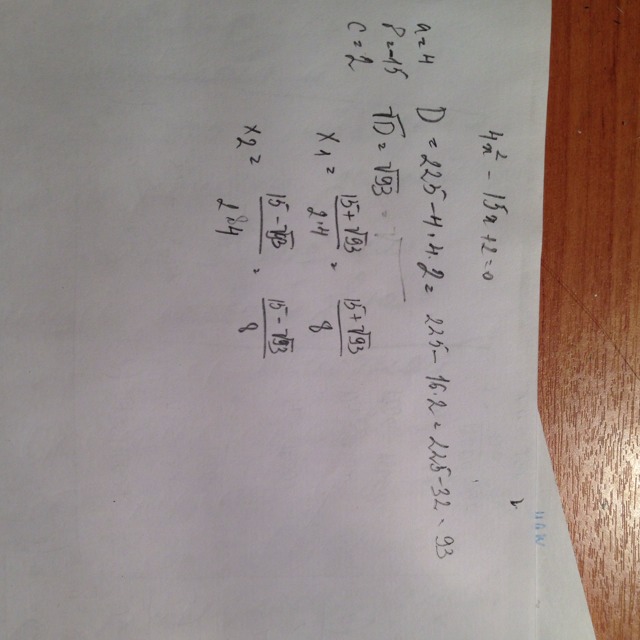 4x² - 15x + 2 = 0
a = 4
b = -15
c = 2
D = 225 - 4·4·2 = 225 - 16·2 = 225 - 32 = 93
√D = √93
x₁ = (15 + √93) / (2·4) = (15 + √93) / 8
x₂ = (15 - √93) / (2·4) = (15 - √93) / 8